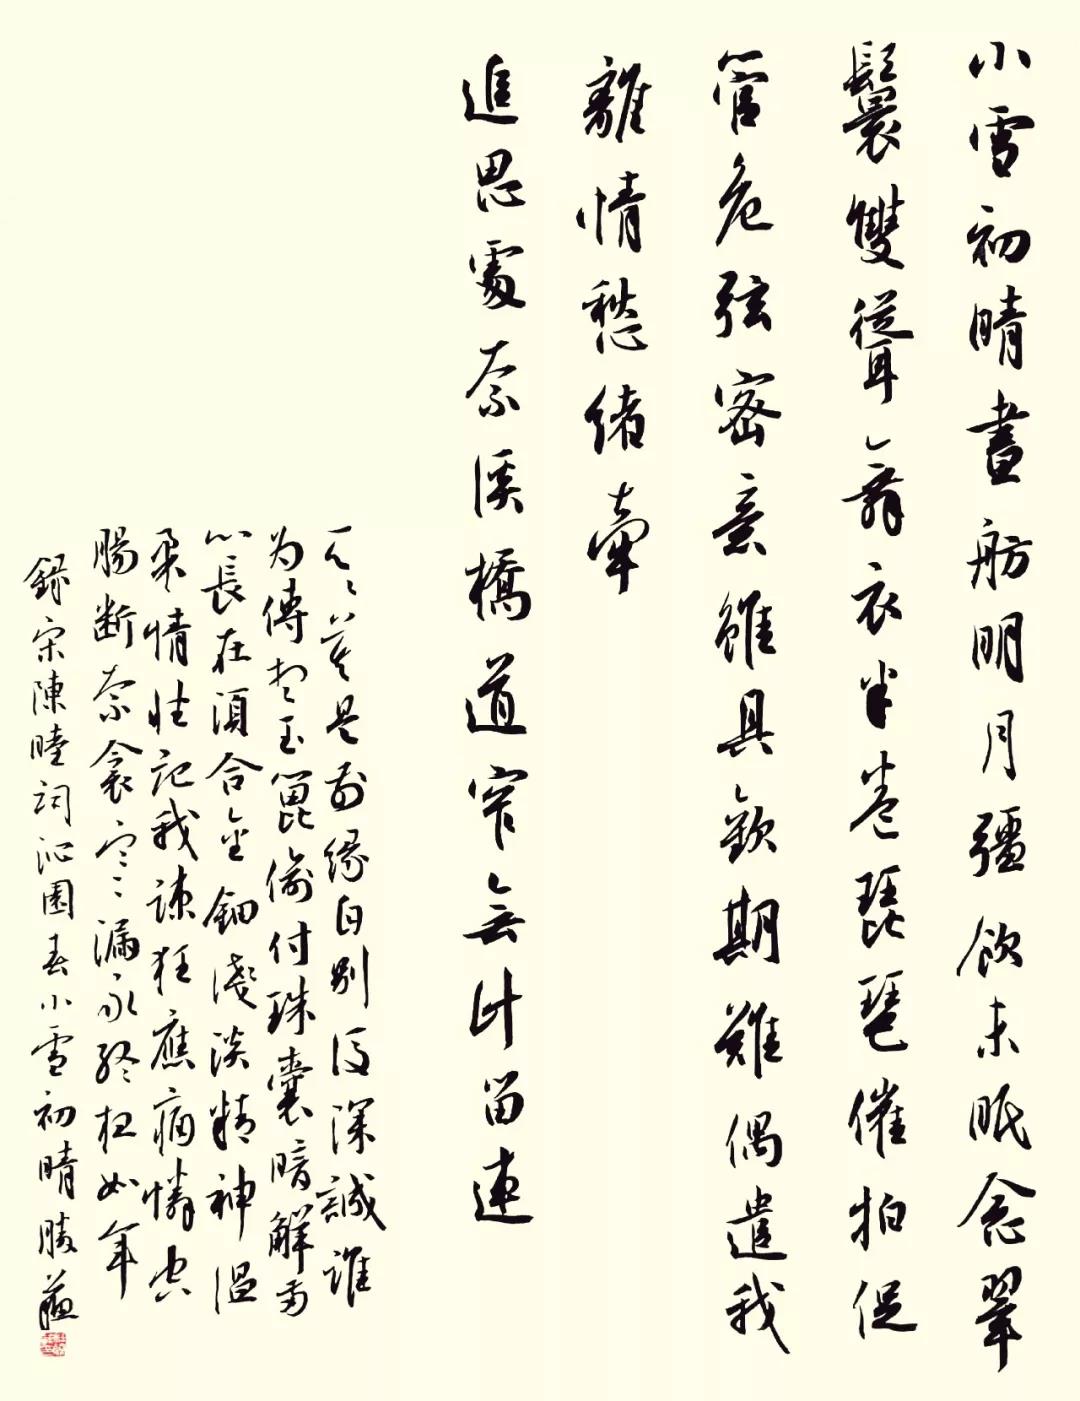 小雪初晴畫舫明月彊飲未眠念翠
鬟雙聳舞衣半卷琵琶催拍促
管危弦密意雖具歡期難偶遣我
離情愁緒牽
追思處奈溪橋道窄無計留連
天天莫是前緣自別後深誠誰
为傳想玉篦偷付珠囊暗解兩
心長在須合金鈿淺淡精神温
柔情性記我疎狂應痛憐空
腸斷奈衾寒漏永終夜如年
錄宋陳睦詞沁園春小雪初晴勝